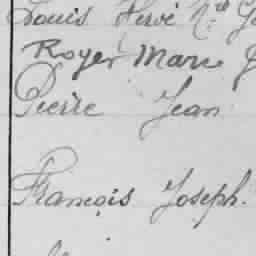 Louis Hervé N
Roger Marc
Pierre Jean
François Joseph.